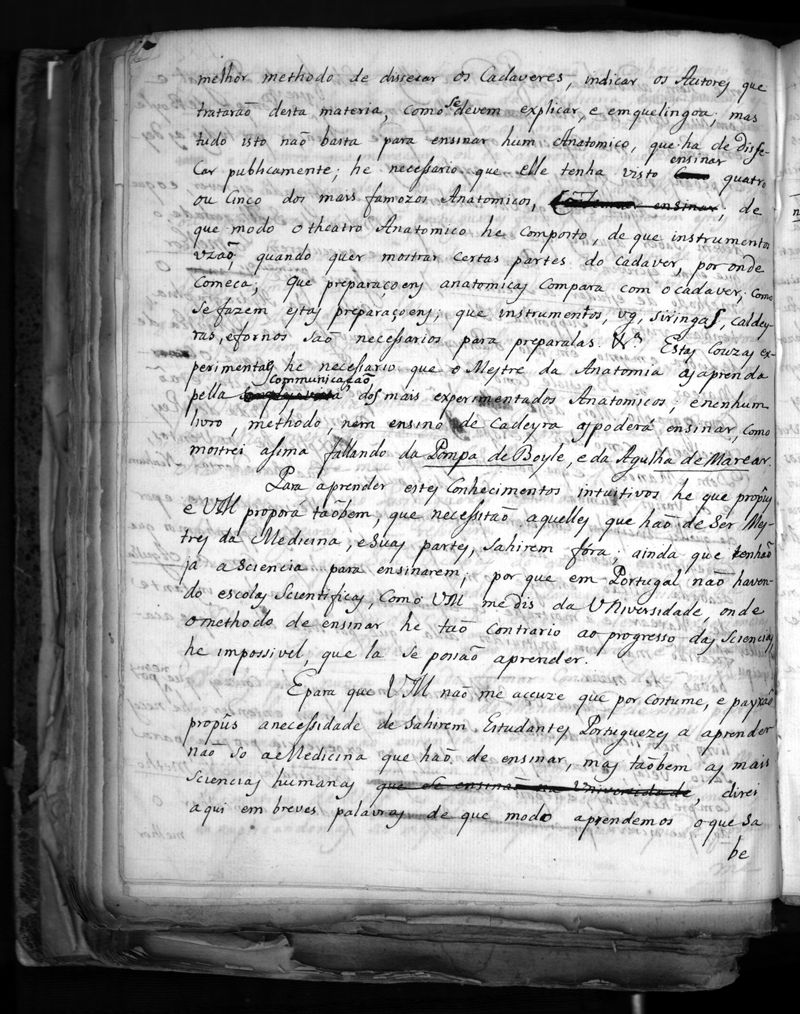 melhor methodo de dissecar os Cadaveres, indicar os Autores que
tratarão desta materia, como se devem explicar, e em que lingoa; mas
tudo isto não basta para ensinar hum Anatomico, que ha de disse-
car publicamente; he necessario que elle tenha visto ensinar quatro
ou cinco dos mais famozos Anatomicos, ensinar; de
que modo o theatro Anatomico he composto, de que instrumentos
uzão, quando quer mostrar certas partes do Cadaver, por onde
comeca; que preparaçoens anatomicas compara com o cadaver; como
se fazem estas preparaçoens; que instrumentos, vg, siringas, caldey-
ras, e fornos são necessarios para preparalas. Estas couzas ex-
perimentaes he necessario que o Mestre da Anatomia as aprenda
pella communicação dos mais experimentados Anatomicos; e nenhum
livro, methodo, nem ensino de Cadeyra as poderá ensinar, como
mostrei assima fallando da Pompa de Boyle, e da Agulha de Marear.
Para aprender estes conhecimentos intuitivos he que propûs
e VM proporâ taõbem, que necessitão aquelles que hão de ser Mes-
tres da Medicina, e suas partes, sahirem fóra; ainda que tenhão
ja a sciencia para ensinarem; por que em Portugal não haven-
do escolas Scientificas, como VM me dis da Universidade, onde
o methodo de ensinar he tão contrario ao progresso das Sciencias
he impossivel, que la se possão aprender.
E para que VM não me acuze que por costume, e payxão
propûs a necessidade de sahirem Estudantes Portuguezes a aprender
não so a Medicina que hão de ensinar, mas taõbem as mais
Sciencias humanas que se ensinão na Universidade, direi
aqui em breves palavras de que modo aprendemos o que sa
be